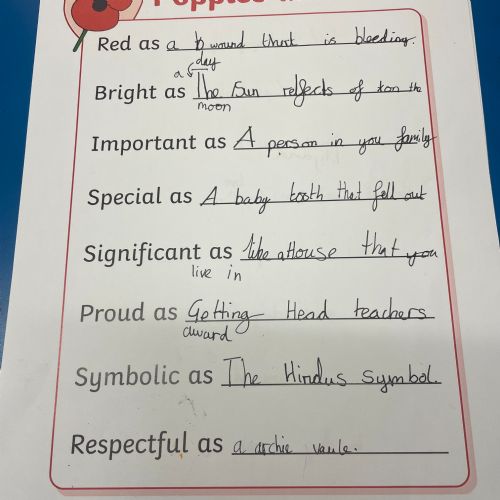 Poppies
Red as a wound that is bleeding.
a day
Bright as The Sun reflects of the
moon
Important as A person in you family
Special as A baby tooth that fell out
Significant as like a House that you
live in
Proud as Getting Head teachers
award
Symbolic as The Hindus symbol
Respectful as a archie vaule.